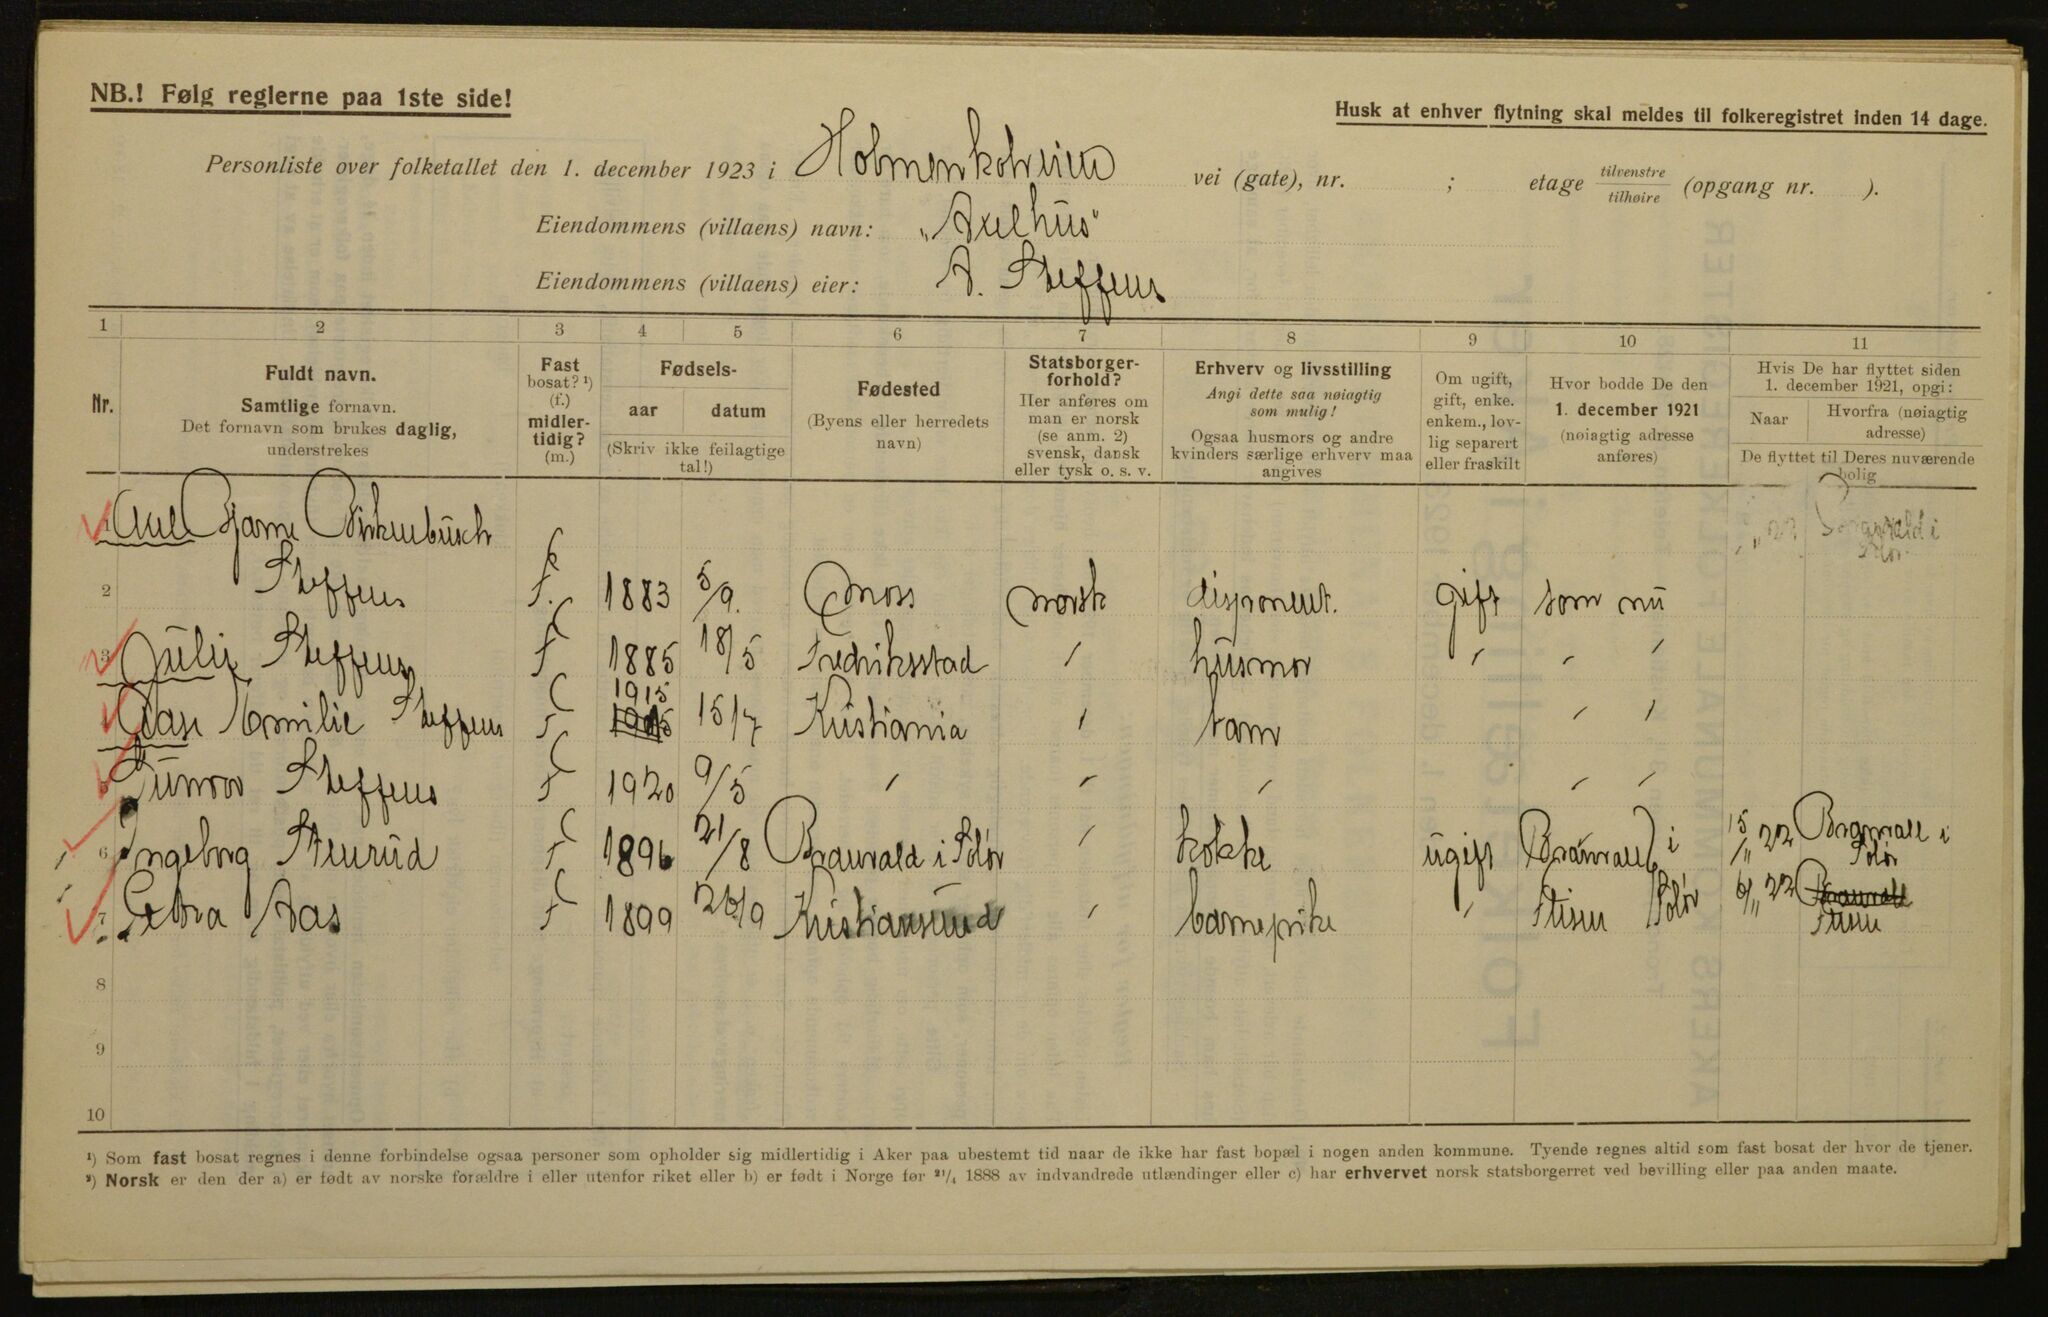 NB.! Følg reglerne paa 1ste side!
Husk at enhver flytning skal meldes til folkeregistret inden 14 dage.
Personliste over folketallet den 1. december 1923 i Holmenkolveien vei (gate), nr. ; etage tilvenstre/tilhøire (opgang nr. ).
Eiendommens (villaens) navn: „Axelhus"
Eiendommens (villaens) eier: A. Steffens
1 2 3 4 5 6 7 8 9 10 11
Nr.
Fuldt navn.
Samtlige fornavn.
Det fornavn som brukes daglig,
understrekes
Fast
bosat? ¹)
(f.)
midler-
tidig?
(m.)
Fødsels-
aar datum
(Skriv ikke feilagtige
tal!)
Fødested
(Byens eller herredets
navn)
Statsborger-
forhold?
Her anføres om
man er norsk
(se anm. 2)
svensk, dansk
eller tysk o. s. v.
Erhverv og livsstilling
Angi dette saa nøiagtig
som mulig!
Ogsaa husmors og andre
kvinders særlige erhverv maa
angives
Om ugift,
gift, enke.
enkem., lov-
lig separert
eller fraskilt
Hvor bodde De den
1. december 1921
(nøiagtig adresse
anføres)
Hvis De har flyttet siden
1. december 1921, opgi:
Naar Hvorfra (nøiagtig
adresse)
De flyttet til Deres nuværende
bolig
1 Axel Bjarne Birkenbusch
2 Steffens f. 1883 5/9. Moss norsk disponent. gift som nu
3 Julie Steffens f 1885 18/5 Fredriksstad " husmor " " "
4 Aase Emilie Steffens f 1915 15/7 Kristiania " barn " "
5 Gunvor Steffens f 1920 9/5 " " " " "
6 Ingeborg Stenrud f 1896 21/8 Brandvald i Solør " kokke ugift Brandvall i Solør 15/11 22 Brandvall i Solør
7 Petra Aas f 1899 26/9 Kristiansund " barnepike " Stisen 6/11 22 Stisen
8
9
10
¹) Som fast bosat regnes i denne forbindelse ogsaa personer som opholder sig midlertidig i Aker paa ubestemt tid naar de ikke har fast bopæl i nogen anden kommune. Tyende regnes altid som fast bosat der hvor de tjener.
²) Norsk er den der a) er født av norske forældre i eller utenfor riket eller b) er født i Norge før ²¹/₄ 1888 av indvandrede utlændinger eller c) har erhvervet norsk statsborgerret ved bevilling eller paa anden maate.